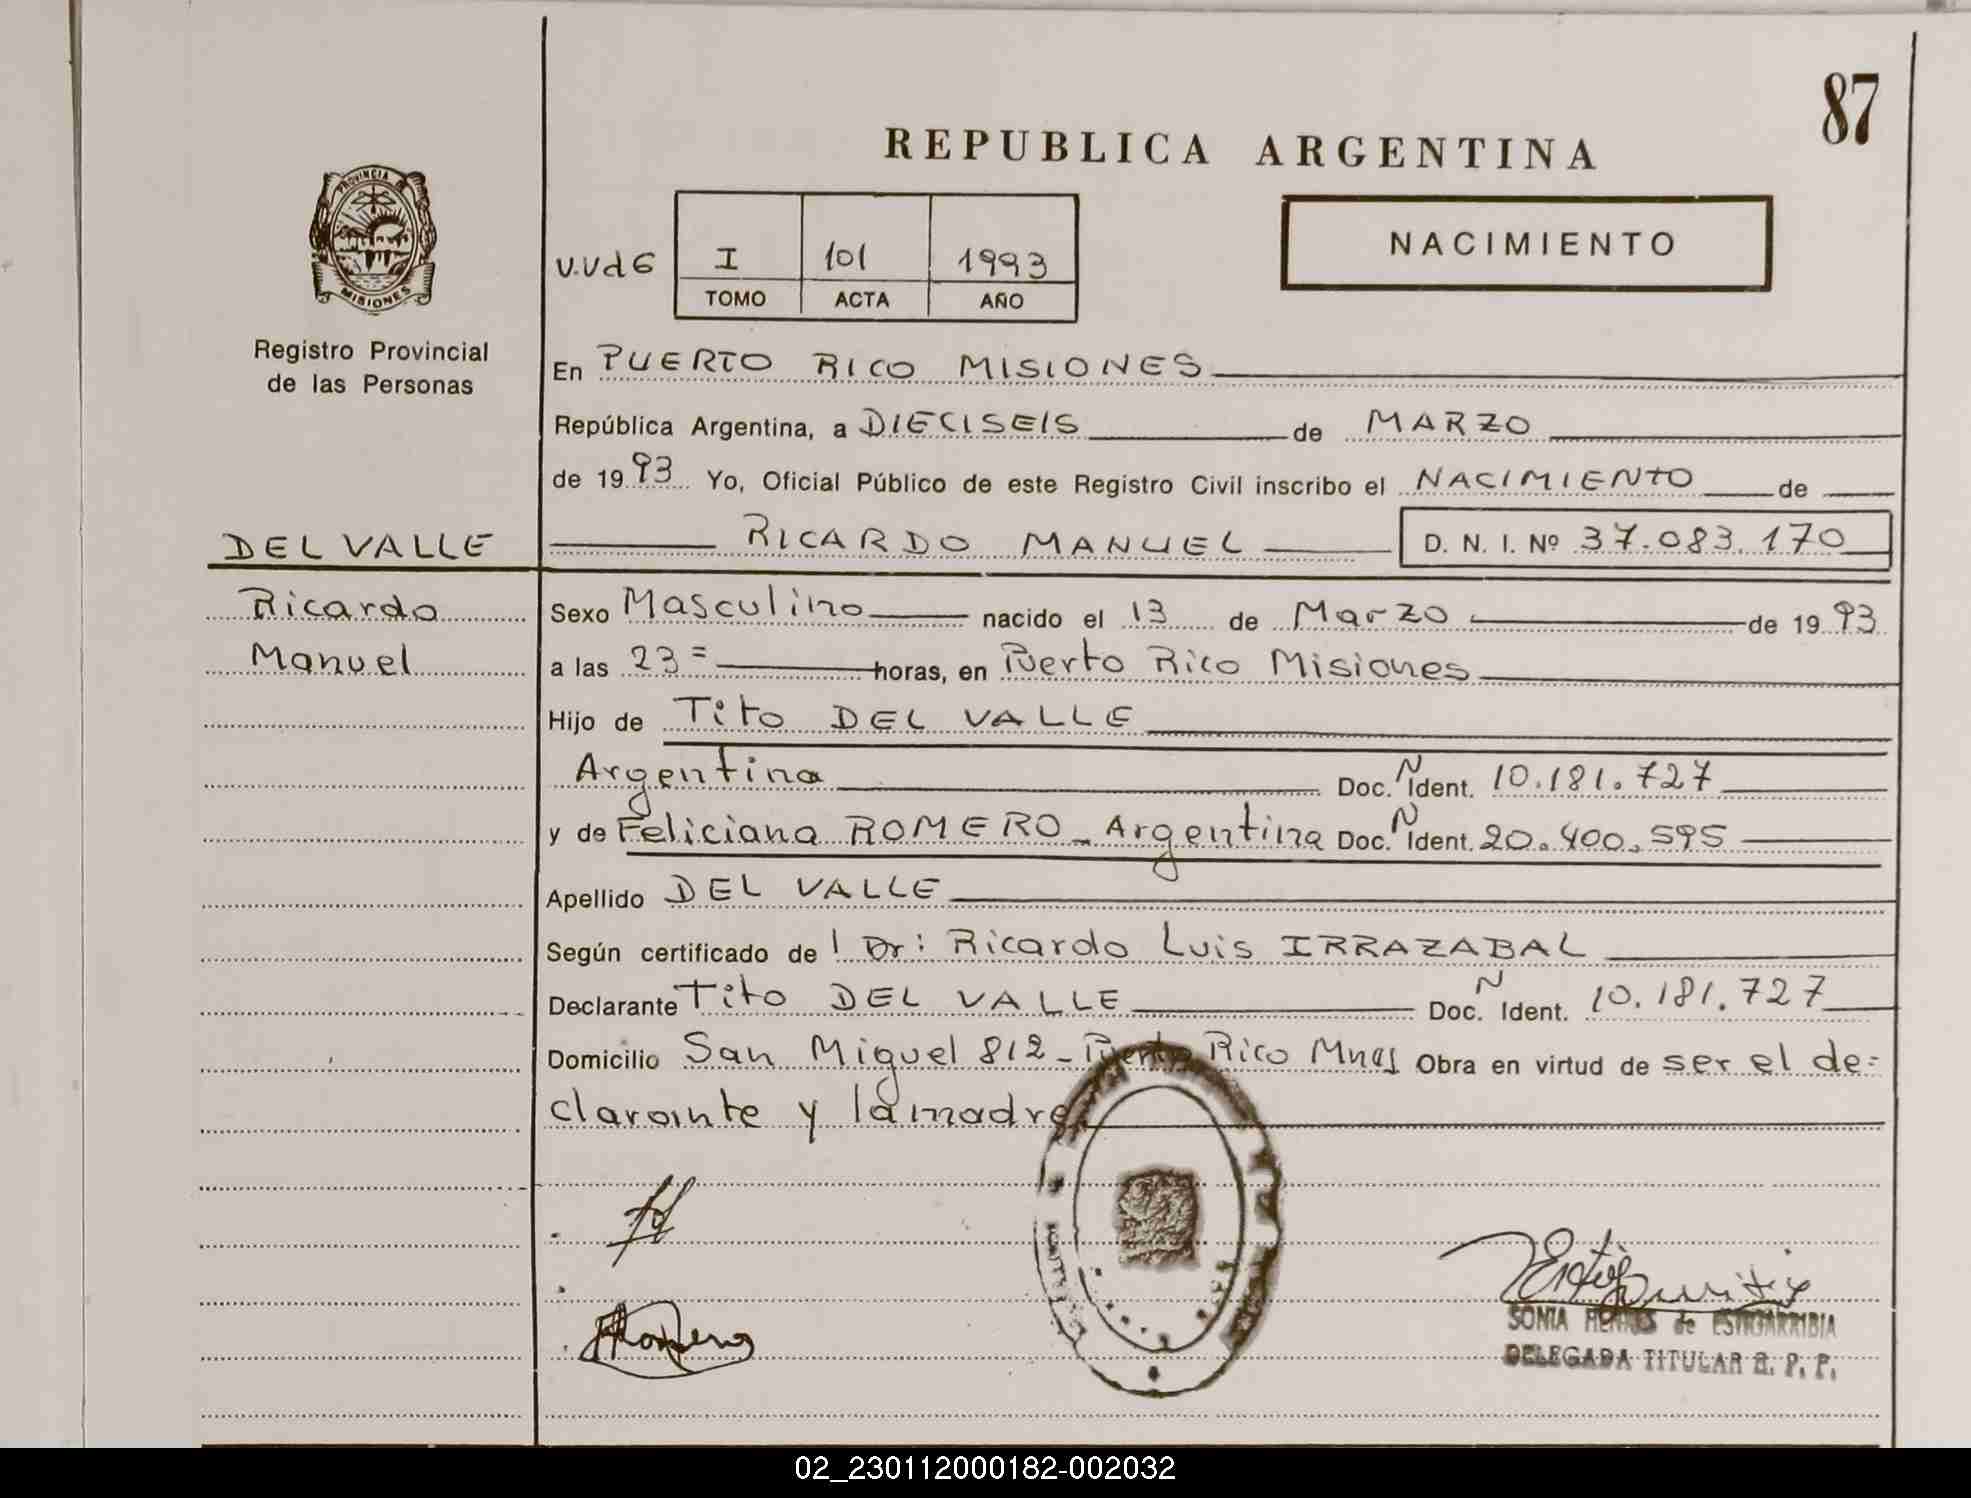 87
REPUBLICA ARGENTINA
PROVINCIA DE
MISIONES
Registro Provincial
de las Personas
NACIMIENTO
V.V d G I 101 1993
TOMO ACTA AÑO
En PUERTO RICO MISIONES
República Argentina, a DIECISEIS de MARZO
de 1993 Yo, Oficial Público de este Registro Civil inscribo el NACIMIENTO de
DEL VALLE RICARDO MANUEL D. N. I. Nº 37.083.170
Ricardo Sexo Masculino nacido el 13 de Marzo de 1993
Manuel a las 23= horas, en Puerto Rico Misiones
Hijo de Tito DEL VALLE
Argentina Doc. N Ident. 10.181.727
y de Feliciana ROMERO - Argentina Doc. N Ident. 20.400.595
Apellido DEL VALLE
Según certificado de l Dr: Ricardo Luis IRRAZABAL
Declarante Tito DEL VALLE Doc. N Ident. 10.181.727
Domicilio San Miguel 812 - Puerto Rico Mnes Obra en virtud de ser el de=
clarante y la madre
SONIA de
DELEGADA TITULAR R. P. P.
02_230112000182-002032